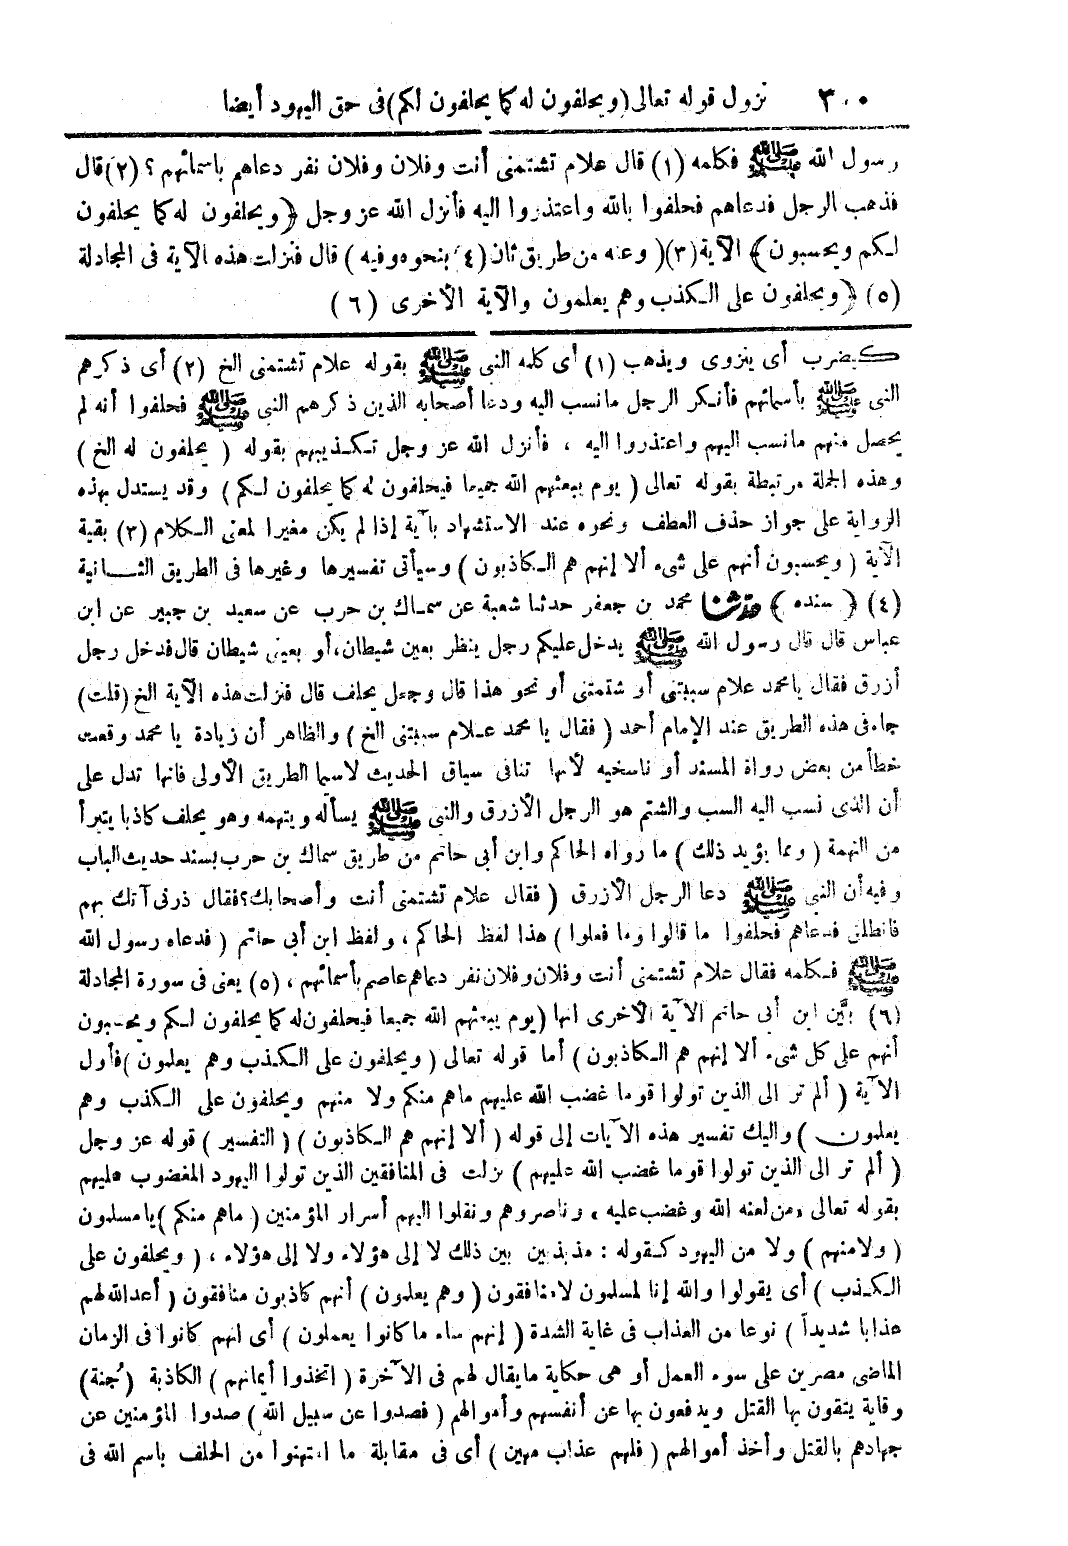 ٣٠٠ نزول قوله تعالى (ويحلفون له كما يحلفون لكم) فى حق اليهود أيضا
رسول الله ﷺ فكلمه (١) قال علام تشتمنى أنت وفلان وفلان نفر دعاهم باسمائهم ؟ (٢) قال
فذهب الرجل فدعاهم فحلفوا بالله واعتذروا اليه فأنزل الله عز وجل ﴿ويحلفون له كما يحلفون
لكم ويحسبون﴾ الآية (٣) ( وعنه من طريق ثان (٤) بنحوه وفيه ) قال فنزلت هذه الآية فى المجادلة
(٥) ﴿ويحلفون على الكذب وهم يعلمون والآية الأخرى (٦)
كيضرب أى ينزوى ويذهب (١) أى كلمه النبى ﷺ بقوله علام تشتمنى الخ (٢) أى ذكرهم
النبى ﷺ بأسمائهم فأنكر الرجل مانسب اليه ودعا أصحابه الذين ذكرهم النبى ﷺ فحلفوا أنه لم
يحصل منهم مانسب اليهم واعتذروا اليه ، فأنزل الله عز وجل تكذيبهم بقوله ( يحلفون له الخ )
وهذه الجملة مرتبطة بقوله تعالى ( يوم يبعثهم الله جميعا فيحلفون له كما يحلفون لكم ) وقد يستدل بهذه
الرواية على جواز حذف العطف ونحوه عند الاستشهاد بآية إذا لم يكن مغيرا لمعنى الكلام (٣) بقية
الآية ( ويحسبون أنهم على شىء ألا إنهم هم الكاذبون ) وسيأتى تفسيرها وغيرها فى الطريق الثانية
(٤) ﴿ سنده ﴾ حدثنا محمد بن جعفر حدثنا شعبة عن سماك بن حرب عن سعيد بن جبير عن ابن
عباس قال قال رسول الله ﷺ يدخل عليكم رجل ينظر بعين شيطان، أو بعينى شيطان قال فدخل رجل
أزرق فقال يا محمد علام سببتنى أو شتمتنى أو نحو هذا قال وجعل يحلف قال فنزلت هذه الآية الخ (قلت)
جاء فى هذه الطريق عند الإمام أحمد ( فقال يا محمد علام سببتنى الخ ) والظاهر أن زيادة يا محمد وقعت
خطأ من بعض رواة المسند أو ناسخيه لأنها تنافى سياق الحديث لاسيما الطريق الأولى فانها تدل على
أن الذى نسب اليه السب والشتم هو الرجل الأزرق والنبى ﷺ يسأله ويتهمه وهو يحلف كاذبا يتبرأ
من التهمة ( ومما يؤيد ذلك ) ما رواه الحاكم وابن أبى حاتم من طريق سماك بن حرب بسند حديث الباب
وفيه أن النبى ﷺ دعا الرجل الأزرق ( فقال علام تشتمنى أنت وأصحابك؟ فقال ذرنى آتك بهم
فانطلق فدعاهم فحلفوا ما قالوا وما فعلوا ) هذا لفظ الحاكم ، ولفظ ابن أبى حاتم ( فدعاه رسول الله
ﷺ فكلمه فقال علام تشتمنى أنت وفلان وفلان نفر دعاهم عاصم بأسمائهم ، (٥) يعنى فى سورة المجادلة
(٦) بيَّن ابن أبى حاتم الآية الأخرى انها (يوم يبعثهم الله جميعا فيحلفون له كما يحلفون لكم ويحسبون
أنهم على كل شىء ألا إنهم هم الكاذبون ) أما قوله تعالى ( ويحلفون على الكذب وهم يعلمون ) فأول
الآية ( ألم تر الى الذين تولوا قوما غضب الله عليهم ماهم منكم ولا منهم ويحلفون على الكذب وهم
يعلمون ) واليك تفسير هذه الآيات إلى قوله ( ألا إنهم هم الكاذبون ) ( التفسير ) قوله عز وجل
( ألم تر الى الذين تولوا قوما غضب الله عليهم ) نزلت فى المنافقين الذين تولوا اليهود المغضوب عليهم
بقوله تعالى ، من لعنه الله وغضب عليه ، وناصروهم ونقلوا اليهم أسرار المؤمنين ( ماهم منكم ) يامسلمون
( ولا منهم ) ولا من اليهود كقوله : مذبذبين بين ذلك لا إلى هؤلاء ولا إلى هؤلاء ، ( ويحلفون على
الكذب ) أى يقولوا والله إنا لمسلمون لامنافقون ( وهم يعلمون ) أنهم كاذبون منافقون ( أعد الله لهم
عذابا شديداً ) نوعا من العذاب فى غاية الشدة ( إنهم ساء ما كانوا يعملون ) أى انهم كانوا فى الزمان
الماضى مصرين على سوء العمل أو هى حكاية مايقال لهم فى الآخرة ( اتخذوا أيمانهم ) الكاذبة (جُنة)
وقاية يتقون بها القتل ويدفعون بها عن أنفسهم وأموالهم ( فصدوا عن سبيل الله ) صدوا المؤمنين عن
جهادهم بالقتل وأخذ أموالهم ( فلهم عذاب مهين ) أى فى مقابلة ما امتهنوا من الحلف باسم الله فى